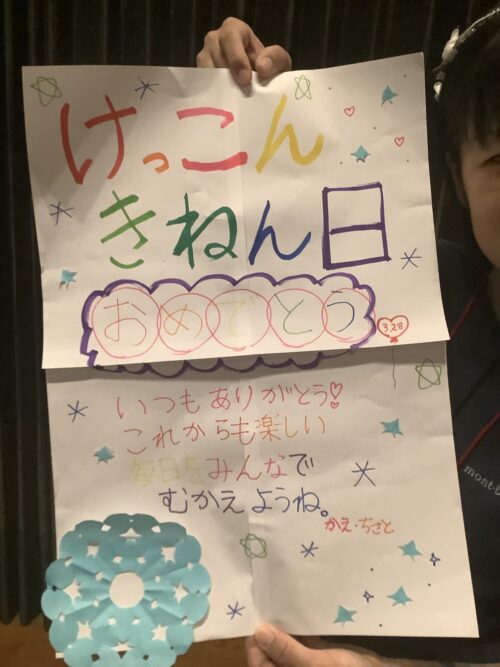 けっこん
きねん日
おめでとう
3.28
いつもありがとう!
これからも楽しい
毎日をみんなで
むかえようね。
かえ・ちさと
mont-b